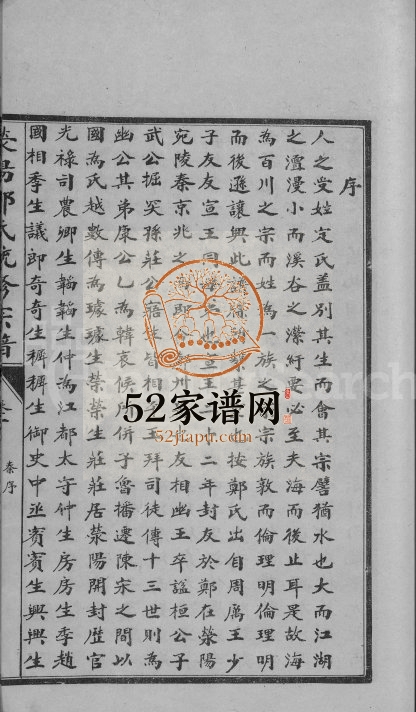 序
人之受姓定氏蓋别其生而會其宗譬猶水也大而江湖
之澶漫小而溪谷之瀠紆要必至夫海而後止耳是故海
為百川之宗而姓為一族之宗宗族敦而倫理明倫理明
而後遜讓興此按鄭氏出自周厲王少
子友友宣王同二年封友於鄭在滎陽
宛陵秦京兆之友相幽王卒諡桓公子
武公掘突孫莊公皆相王拜司徒傳十三世則為
幽公其弟康公乙為韓哀候所併子魯播遷陳宋之間以
國為氏越數傳為璩璩生榮榮生莊莊居滎陽開封歴官
光祿司農卿生韜韜生仲為江都太守仲生房房生季趙
國相季生議即奇奇生穉穉生御史中丞賓賓生興興生
滎陽鄭氏統修宗譜
卷一
秦序
52家谱网
52jiapu.com